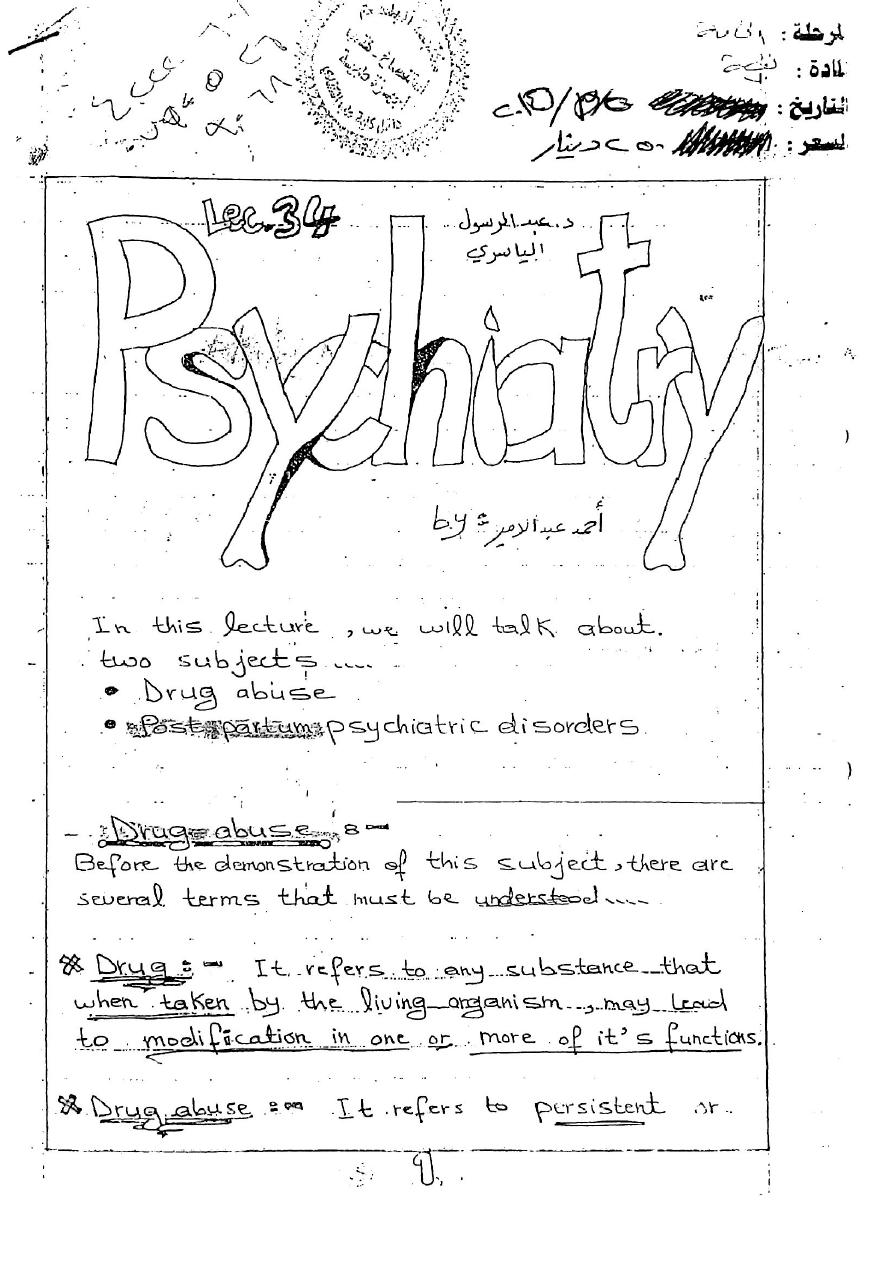 المرحلة : الخامسة
المادة :
التاريخ :
السعر : ٢٥٠ دينار
Lec. 34
د. عبد الرسول
الياسري
Psychiatry
by : أحمد عبد الامير
In this lecture , we will talk about.
two subjects ....
• Drug abuse
• Post partum psychiatric disorders
Drug abuse :-
Before the demonstration of this subject , there are
several terms that must be understood....
※ Drug :- It refers to any substance that
when taken by the living organism , may lead
to modification in one or more of it's functions.
※ Drug abuse :- It refers to persistent or